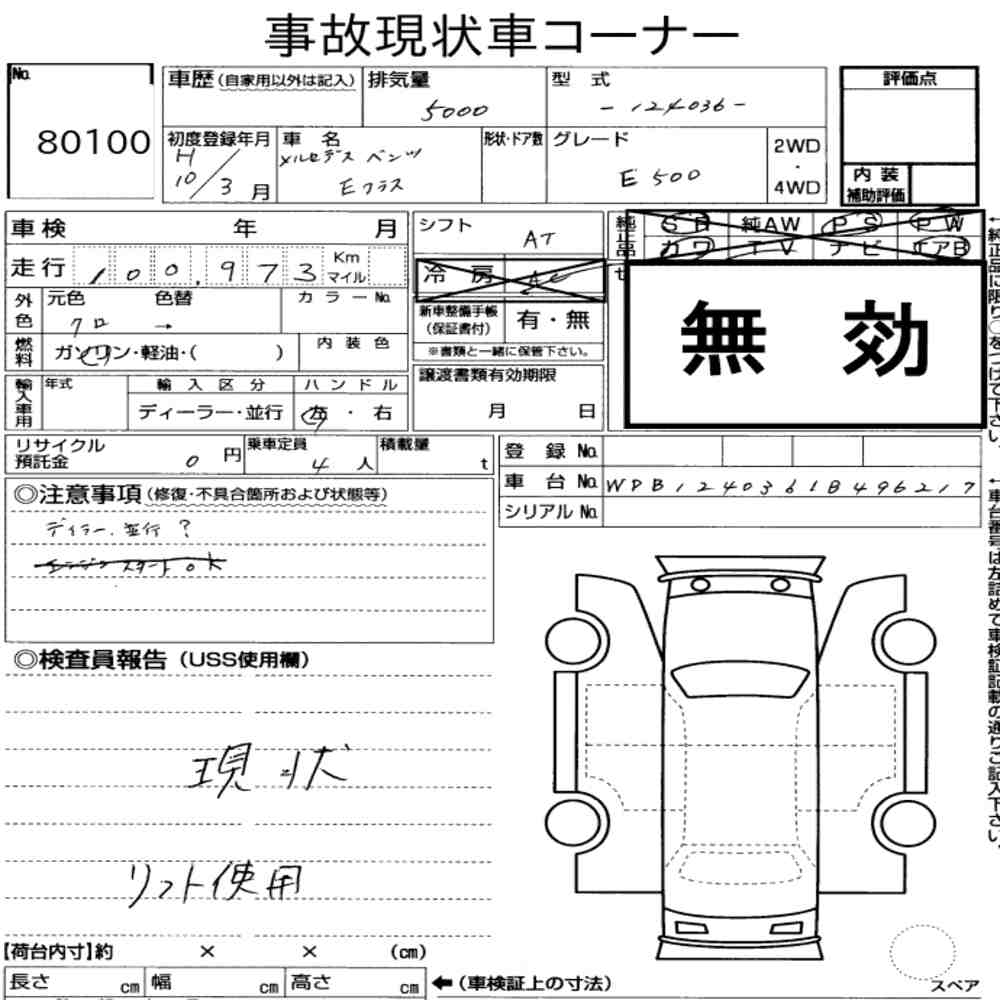 事故現状車コーナー
No.
80100
車歴(自家用以外は記入)
排気量
5000
型式
-124036-
評価点
初度登録年月
H
10/3月
車名
メルセデス ベンツ
Eクラス
形状・ドア数
グレード
E500
2WD
・
4WD
内装
補助評価
車検 年 月
シフト
AT
純正品
SR 純AW PS PW
カワ TV ナビ エアB
走行 100,973 Km マイル
冷房 AC
無効
外色 元色 色替 カラーNo.
クロ →
新車整備手帳
(保証書付)
有・無
※書類と一緒に保管下さい。
燃料 ガソリン・軽油・( )
内装色
輸入車用 年式 輸入区分 ハンドル
ディーラー・並行 左・右
譲渡書類有効期限
月 日
リサイクル
預託金 0円
乗車定員
4人
積載量
t
登録No.
車台No. WPB1240361B496217
シリアルNo.
◎注意事項(修復・不具合箇所および状態等)
ディラー、並行?
エンジンスタートOK
◎検査員報告(USS使用欄)
現状
リフト使用
【荷台内寸】約 × × (cm)
長さ cm 幅 cm 高さ cm
←(車検証上の寸法)
スペア
←純正品に限り○をつけて下さい。
←車台番号は左詰めで車検証記載の通りご記入下さい。